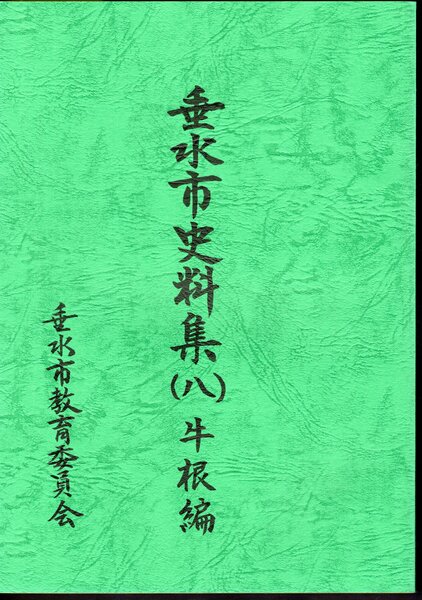 垂水市史料集(八)牛根編
垂水市教育委員会